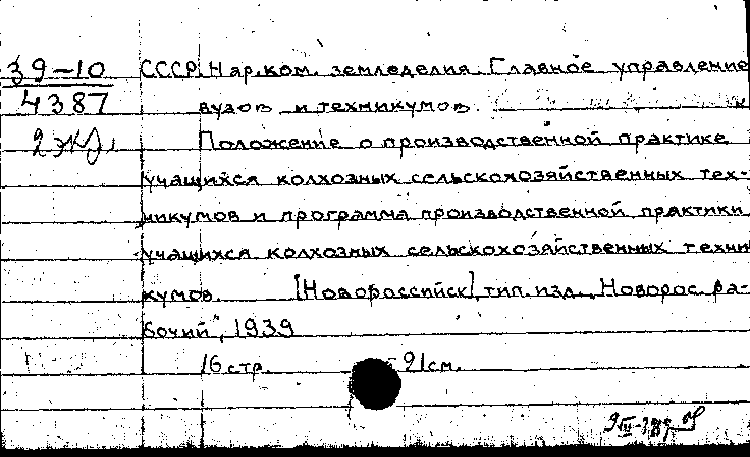 39-10 СССР. Нар.ком. земледелия. Главное управление
4387 вузов и техникумов.
2 экз. Положение о производственной практике
учащихся колхозных сельскохозяйственных тех-
никумов и программа производственной практики
учащихся колхозных сельскохозяйственных техни
кумов. [Новороссийск], тип. изд. „Новорос. ра-
бочий", 1939
16 стр. 21 см.